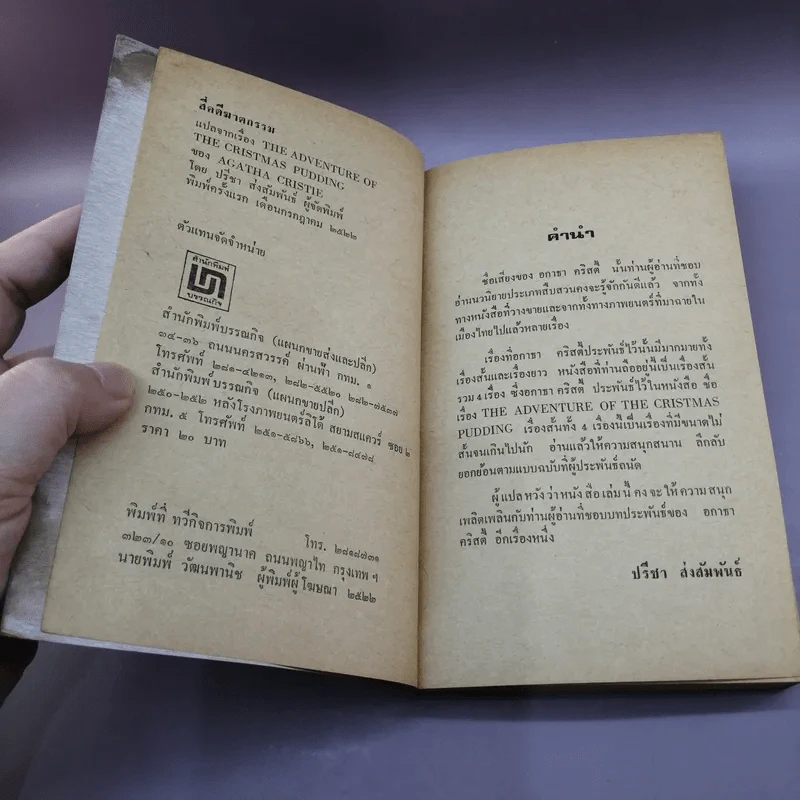 สี่คดีฆาตกรรม
แปลจากเรื่อง THE ADVENTURE OF
THE CRISTMAS PUDDING
ของ AGATHA CRISTIE
โดย ปรีชา ส่งสัมพันธ์ ผู้จัดพิมพ์
พิมพ์ครั้งแรก เดือนกรกฎาคม ๒๕๒๒
ตัวแทนจัดจำหน่าย
สำนักพิมพ์
บรรณกิจ
สำนักพิมพ์บรรณกิจ (แผนกขายส่งและปลีก)
๓๔-๓๖ ถนนนครสวรรค์ ผ่านฟ้า กทม. ๑
โทรศัพท์ ๒๘๑-๔๒๑๓, ๒๘๒-๕๕๒๐ ๒๘๒-๗๕๓๗
สำนักพิมพ์บรรณกิจ (แผนกขายปลีก)
๒๕๐-๒๕๒ หลังโรงภาพยนตร์ลิโด้ สยามสแควร์ ซอย ๒
กทม. ๕ โทรศัพท์ ๒๕๑-๕๘๖๖, ๒๕๑-๘๔๗๘
ราคา ๒๐ บาท
พิมพ์ที่ ทวีกิจการพิมพ์ โทร. ๒๘๑๘๗๓๑
๓๒๓/๑๐ ซอยพญานาค ถนนพญาไท กรุงเทพ ฯ
นายพิมพ์ วัฒนพานิช ผู้พิมพ์ผู้โฆษณา ๒๕๒๒
คำนำ
ชื่อเสียงของ อกาธา คริสตี้ นั้นท่านผู้อ่านที่ชอบ
อ่านนวนิยายประเภทสืบสวนคงจะรู้จักกันดีแล้ว จากทั้ง
ทางหนังสือที่วางขายและจากทั้งทางภาพยนตร์ที่มาฉายใน
เมืองไทยไปแล้วหลายเรื่อง
เรื่องที่อกาธา คริสตี้ประพันธ์ไว้นั้นมีมากมายทั้ง
เรื่องสั้นและเรื่องยาว หนังสือที่ท่านถืออยู่นี้เป็นเรื่องสั้น
รวม 4 เรื่อง ซึ่งอกาธา คริสตี้ ประพันธ์ไว้ในหนังสือ ชื่อ
เรื่อง THE ADVENTURE OF THE CRISTMAS
PUDDING เรื่องสั้นทั้ง 4 เรื่องนี้เป็นเรื่องที่มีขนาดไม่
สั้นจนเกินไปนัก อ่านแล้วให้ความสนุกสนาน ลึกลับ
ยอกย้อนตามแบบฉบับที่ผู้ประพันธ์ถนัด
ผู้แปลหวังว่าหนังสือเล่มนี้คงจะให้ความสนุก
เพลิดเพลินกับท่านผู้อ่านที่ชอบบทประพันธ์ของ อกาธา
คริสตี้ อีกเรื่องหนึ่ง
ปรีชา ส่งสัมพันธ์